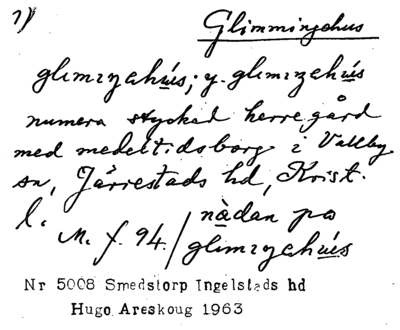 1) Glimmingehus
glımıŋahús; y. glımıŋehús
numera styckad herregård
med medeltidsborg i Vallby
sn, Järrestads hd, Krist.
l.
M. f. 94. / nàdan pɑ
glımıŋahús
Nr 5008 Smedstorp Ingelstads hd
Hugo Areskoug 1963